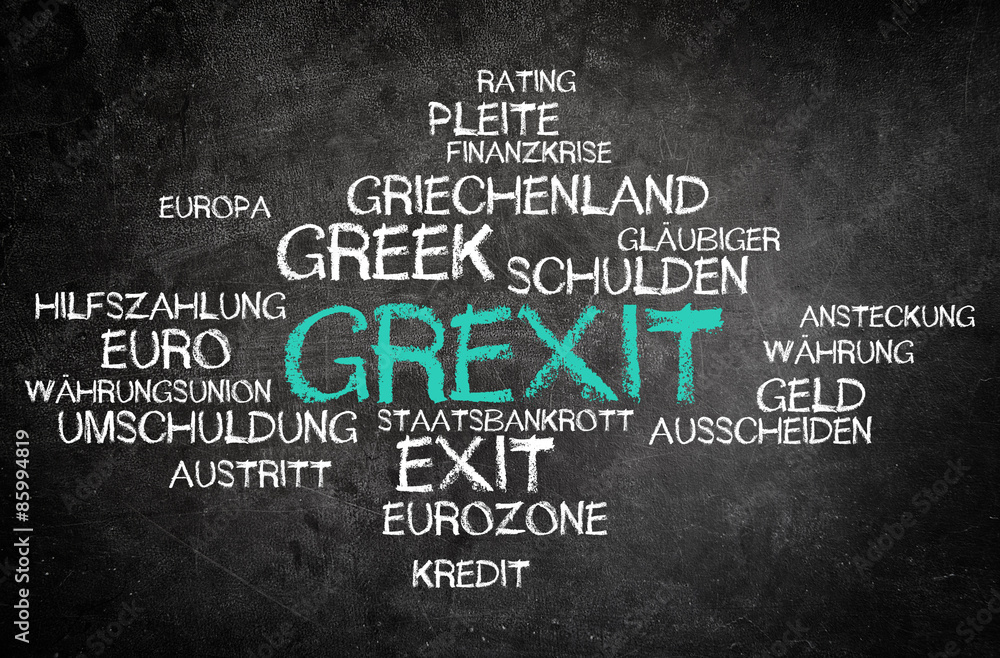 RATING
PLEITE
FINANZKRISE
GRIECHENLAND
EUROPA
GREEK
GLÄUBIGER
SCHULDEN
HILFSZAHLUNG
GREXIT
ANSTECKUNG
EURO
WÄHRUNG
WÄHRUNGSUNION
GELD
UMSCHULDUNG
STAATSBANKROTT
AUSSCHEIDEN
EXIT
AUSTRITT
EUROZONE
KREDIT
Adobe Stock | #85994819